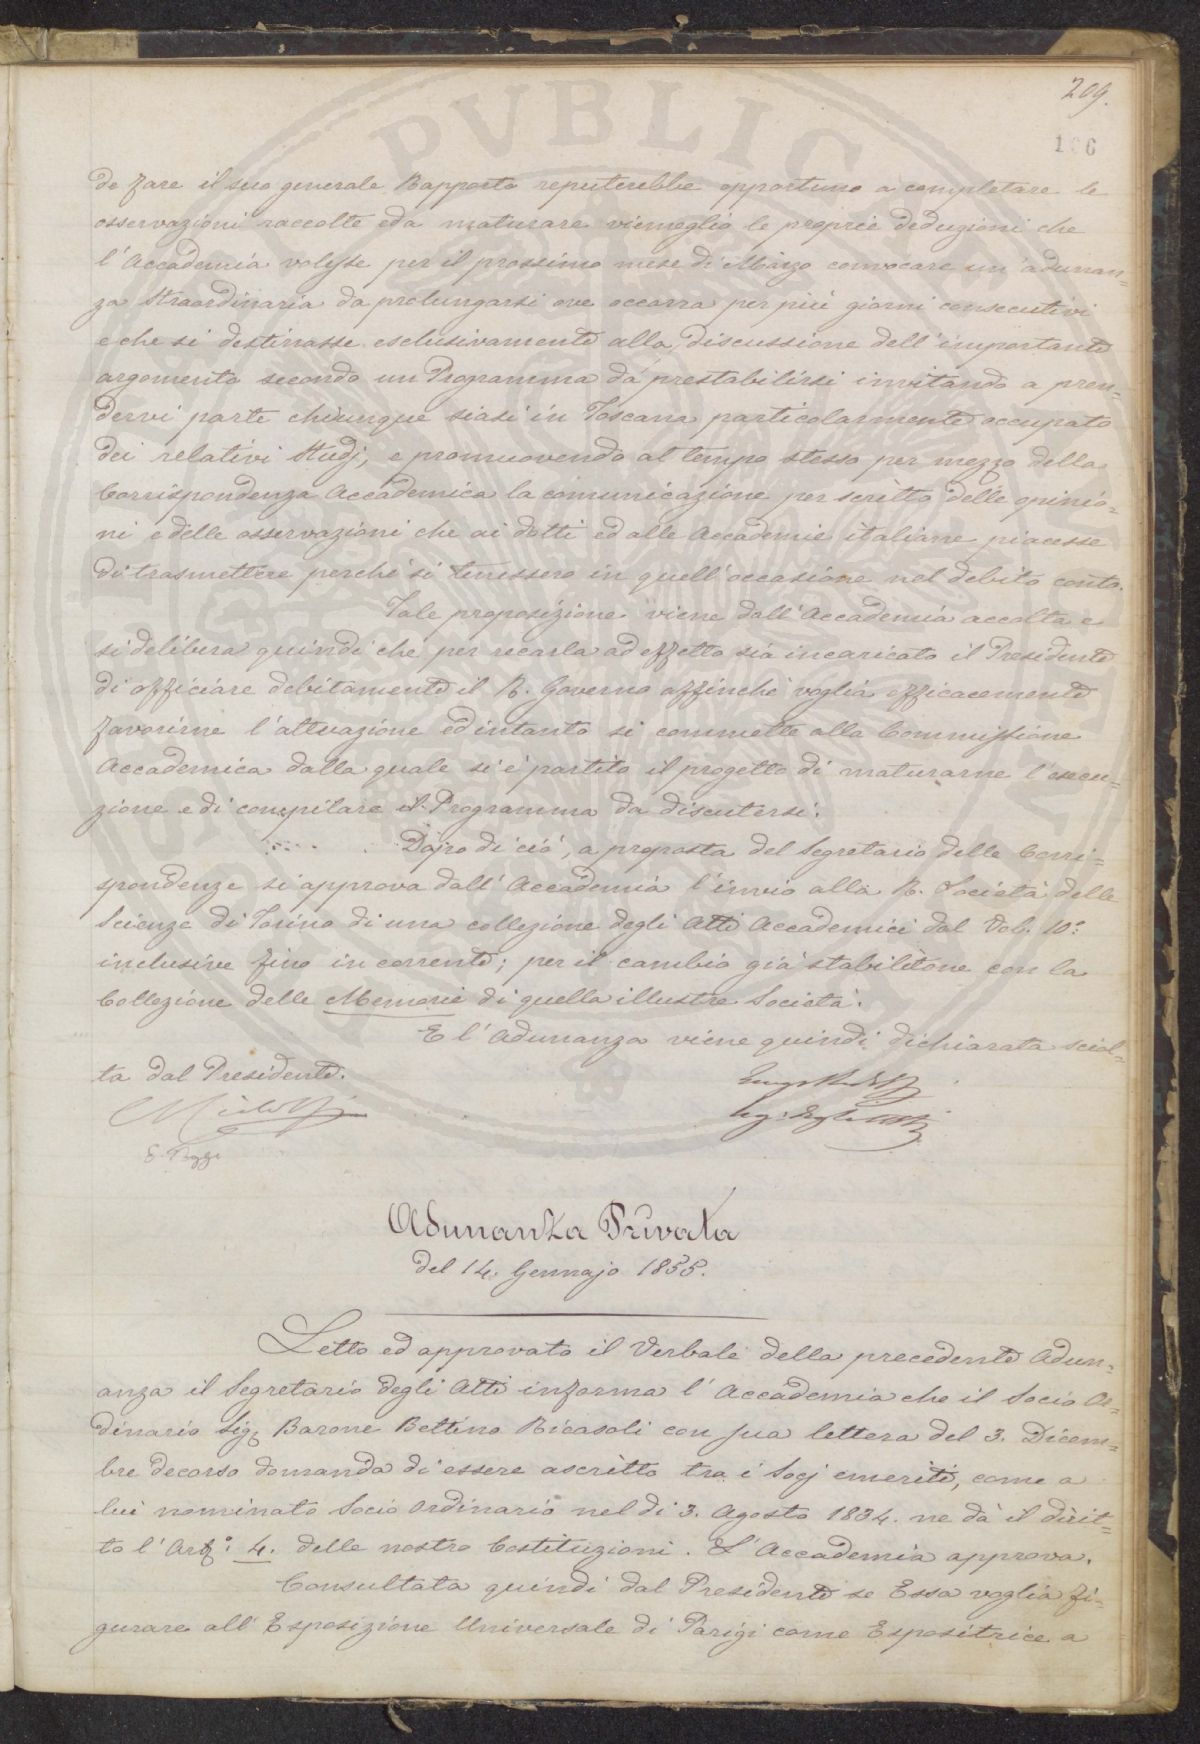 209.
166
de fare il suo generale Rapporto reputerebbe opportuno a completare le
osservazioni raccolte e da maturare viemeglio le proprie deduzioni che
l'Accademia volesse per il prossimo mese di Marzo convocare un'adunan=
za straordinaria da prolungarsi ove occorra per più giorni consecutivi
e che si destinasse esclusivamente alla discussione dell'importante
argomento secondo un Programma da prestabilirsi invitando a pren=
dervi parte chiunque siasi in Toscana particolarmente occupato
dei relativi Studj, e promuovendo al tempo stesso per mezzo della
Corrispondenza Accademica la comunicazione per scritto delle opinio=
ni e delle osservazioni che ai dotti ed alle Accademie italiane piacesse
di trasmettere perchè si tenessero in quell'occasione nel debito conto.
Tale proposizione viene dall'Accademia accolta e
si delibera quindi che per recarla ad effetto sia incaricato il Presidente
di officiare debitamente il R. Governo affinchè voglia efficacemente
favorirne l'attuazione ed intanto si commette alla Commissione
Accademica dalla quale si è partito il progetto di maturarne l'esecu=
zione e di compilare il Programma da discutersi.
Dopo di ciò, a proposta del Segretario delle Corri=
spondenze si approva dall'Accademia l'invio alla R. Società delle
Scienze di Torino di una collezione degli Atti Accademici dal Vol. 10º
inclusive fino in corrente; per il cambio già stabilitone con la
Collezione delle Memorie di quella illustre Società.
E l'Adunanza viene quindi dichiarata sciol=
ta dal Presidente.
E. Poggi
Adunanza Privata
del 14. Gennajo 1855.
Letto ed approvato il Verbale della precedente Adun=
anza il Segretario degli Atti informa l'Accademia che il Socio Or=
dinario Sig. Barone Bettino Ricasoli con sua lettera del 3. Dicem=
bre decorso domanda di essere ascritto tra i Socj emeriti, come a
lui nominato Socio Ordinario nel dì 3. Agosto 1834. ne dà il dirit=
to l'Art.º 4. delle nostre Costituzioni. L'Accademia approva.
Consultata quindi dal Presidente se Essa voglia fi=
gurare all'Esposizione Universale di Parigi come Espositrice a